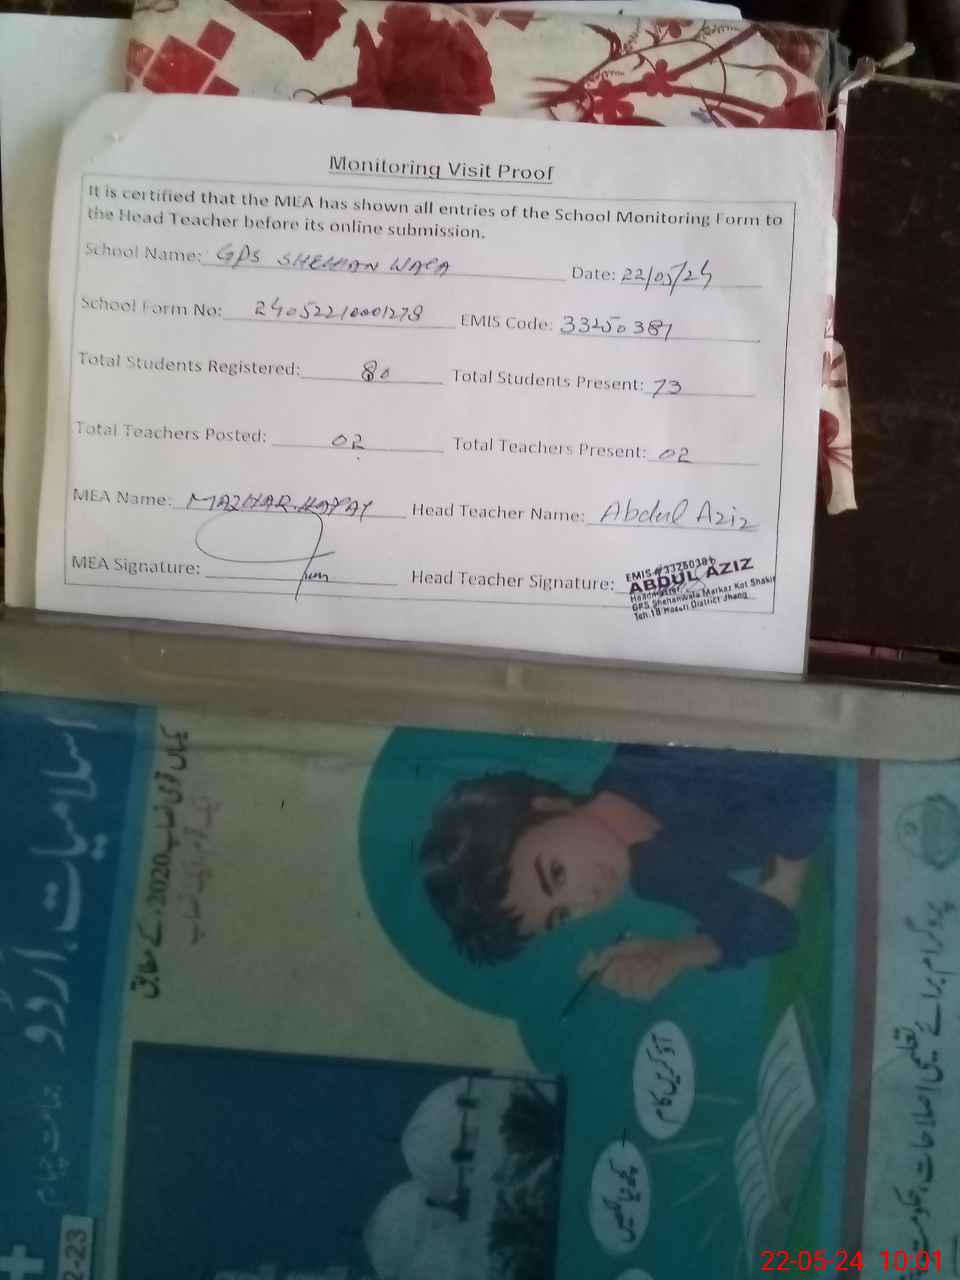 Monitoring Visit Proof
It is certified that the MEA has shown all entries of the School Monitoring Form to
the Head Teacher before its online submission.
School Name: GPS SHEHAN WALA Date: 22/05/24
School Form No: 24052210001278 EMIS Code: 33250381
Total Students Registered: 80 Total Students Present: 73
Total Teachers Posted: 02 Total Teachers Present: 02
MEA Name: MAZHAR HAYAT Head Teacher Name: Abdul Aziz
MEA Signature: Head Teacher Signature:
EMIS # 33250386
ABDUL AZIZ
Headmaster
GPS Shehanwala Markaz Kot Shakir
Teh.18 Hazari District Jhang
اسلامیات، اُردُو
یکساں قومی نصاب 2020ء کے مطابق
ایک قوم، ایک نصاب
آؤ کریں کام
تعلیمی اصلاحات، حکومت
2-23
22-05-24 10:01